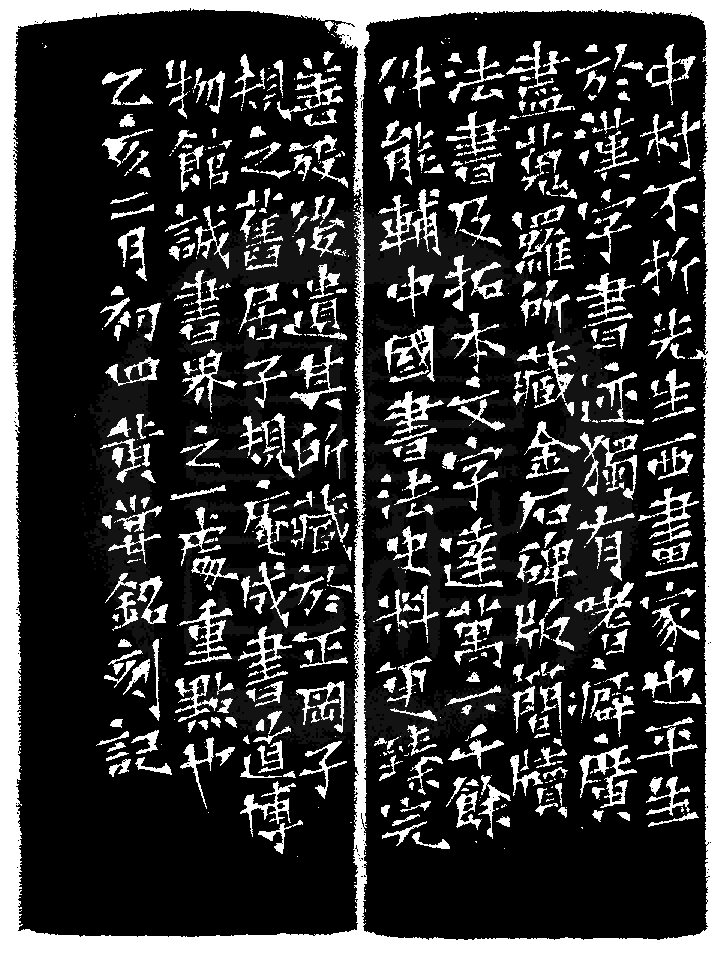 中村不折先生西畫家也平生
於漢字書迹獨有嗜癖廣
盡蒐羅所藏金石碑版簡牘
法書及拓本文字達萬六千餘
件能輔中國書法史料更臻完
善歿後遺其所藏於正岡子
規之舊居子規庵成書道博
物館誠書界之一處重點也
乙亥二月初四黃嘗銘刻記